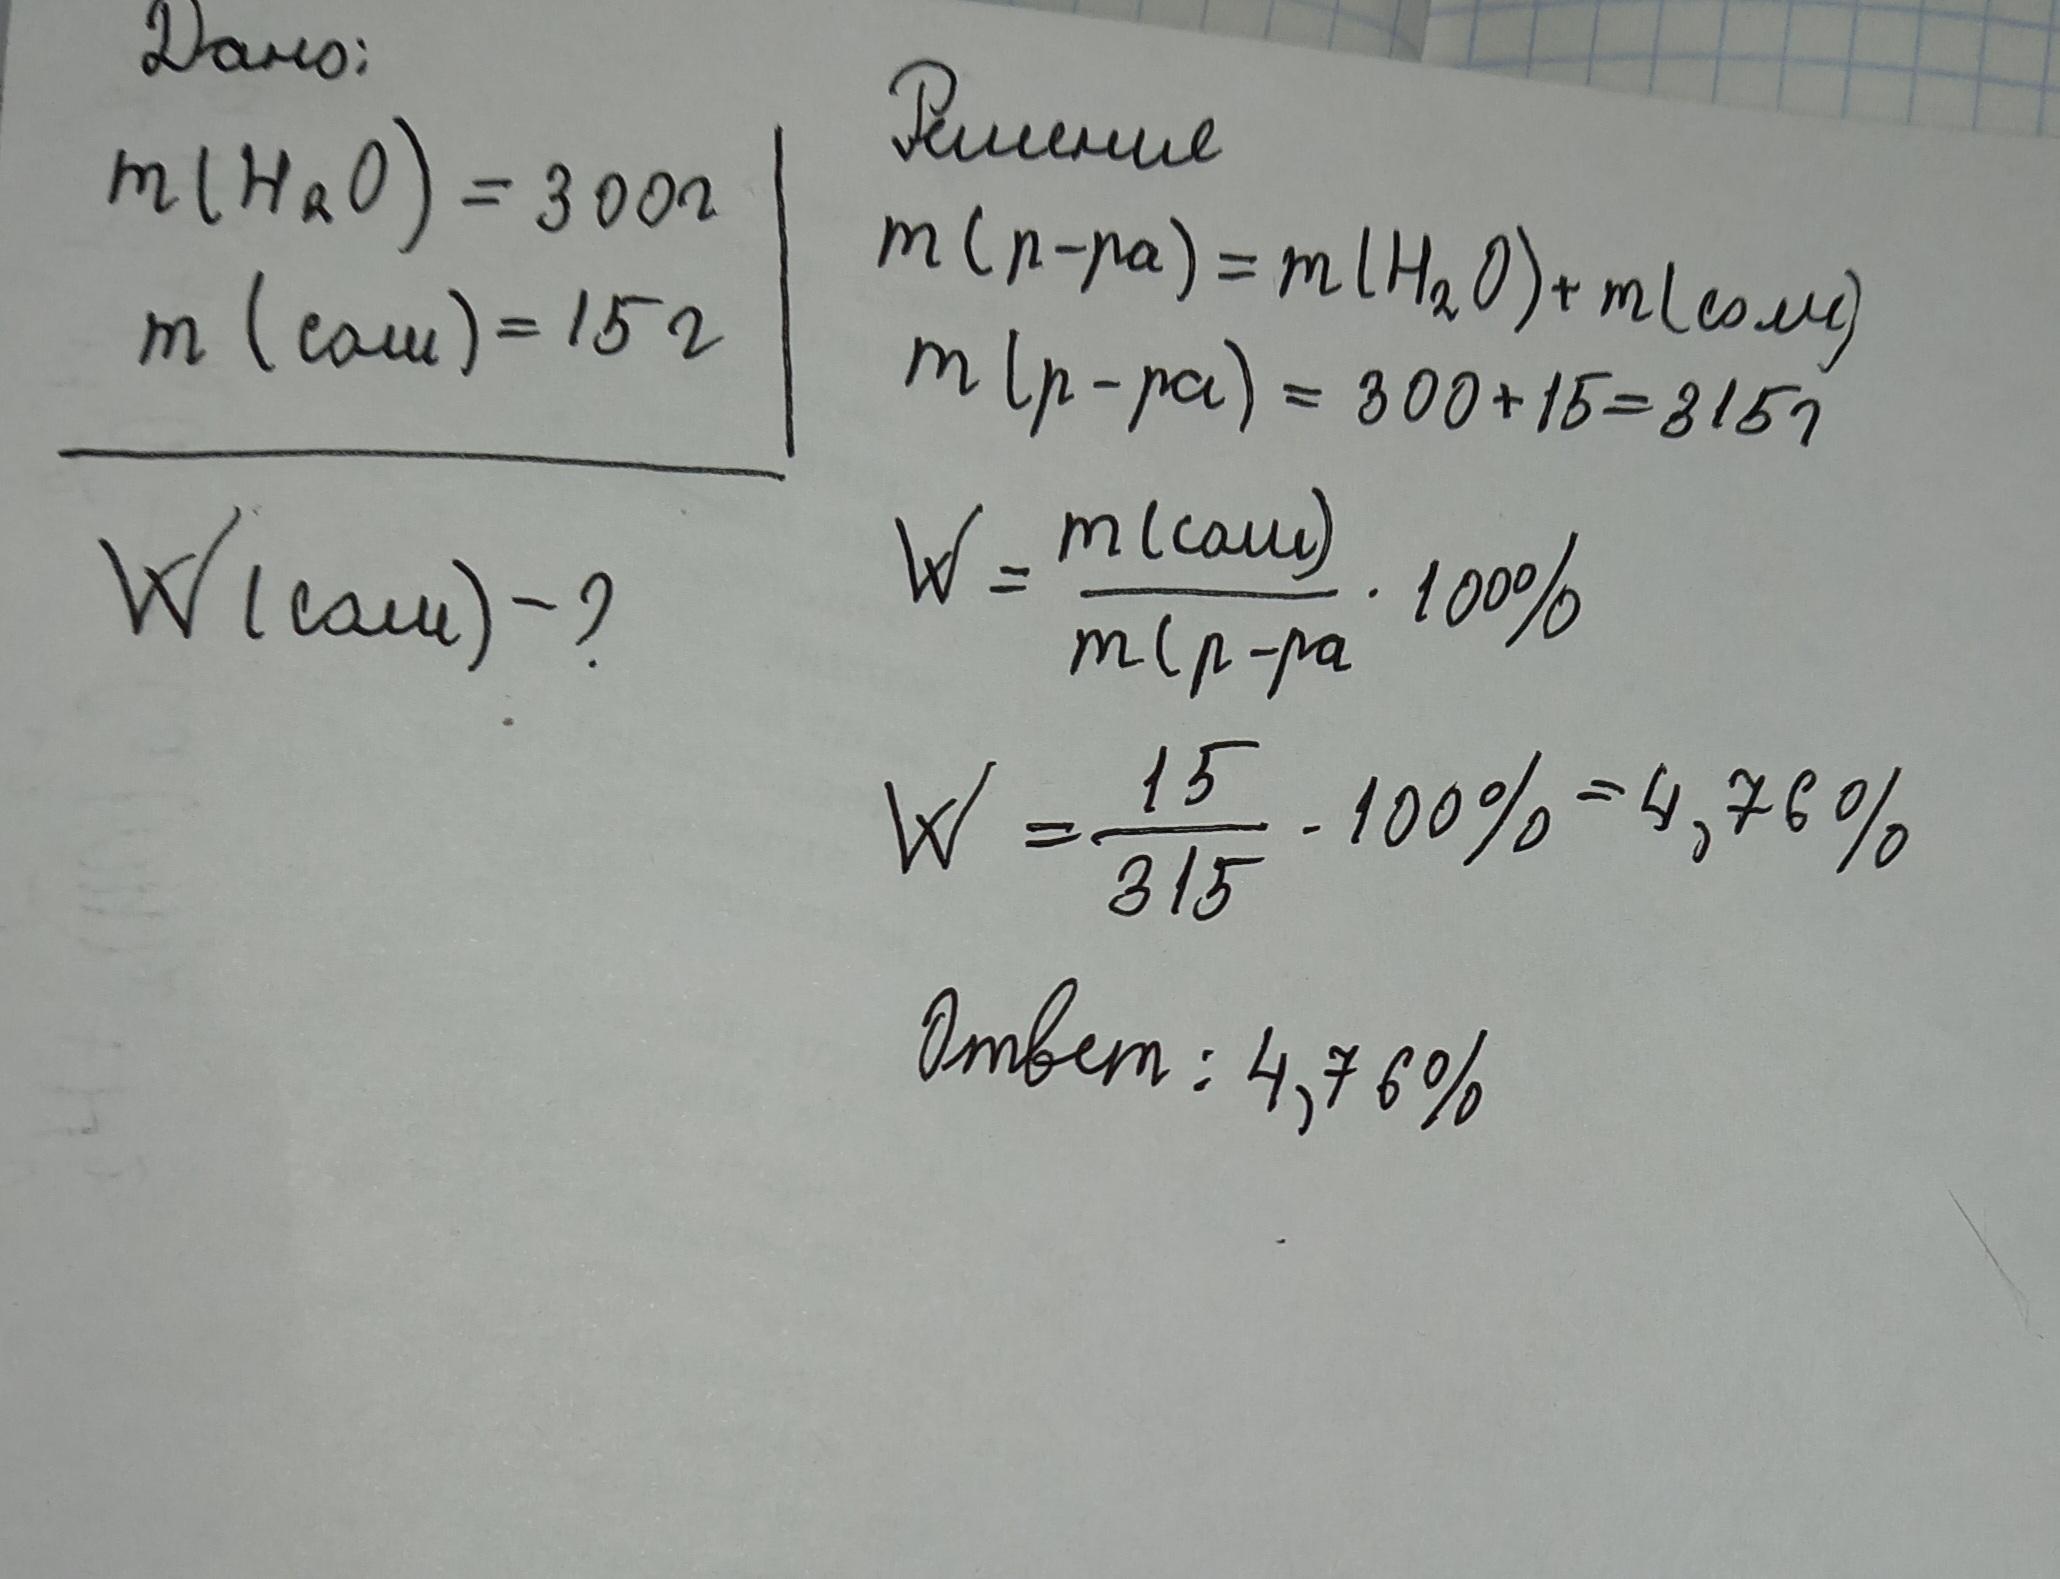 Дано:
m(H₂O) = 300г
m (соли) = 15г
W(соли) - ?
Решение
m(р-ра) = m(H₂O) + m(соли)
m(р-ра) = 300 + 15 = 315г
W = m(соли) / m(р-ра · 100%
W = 15 / 315 · 100% = 4,76%
Ответ: 4,76%